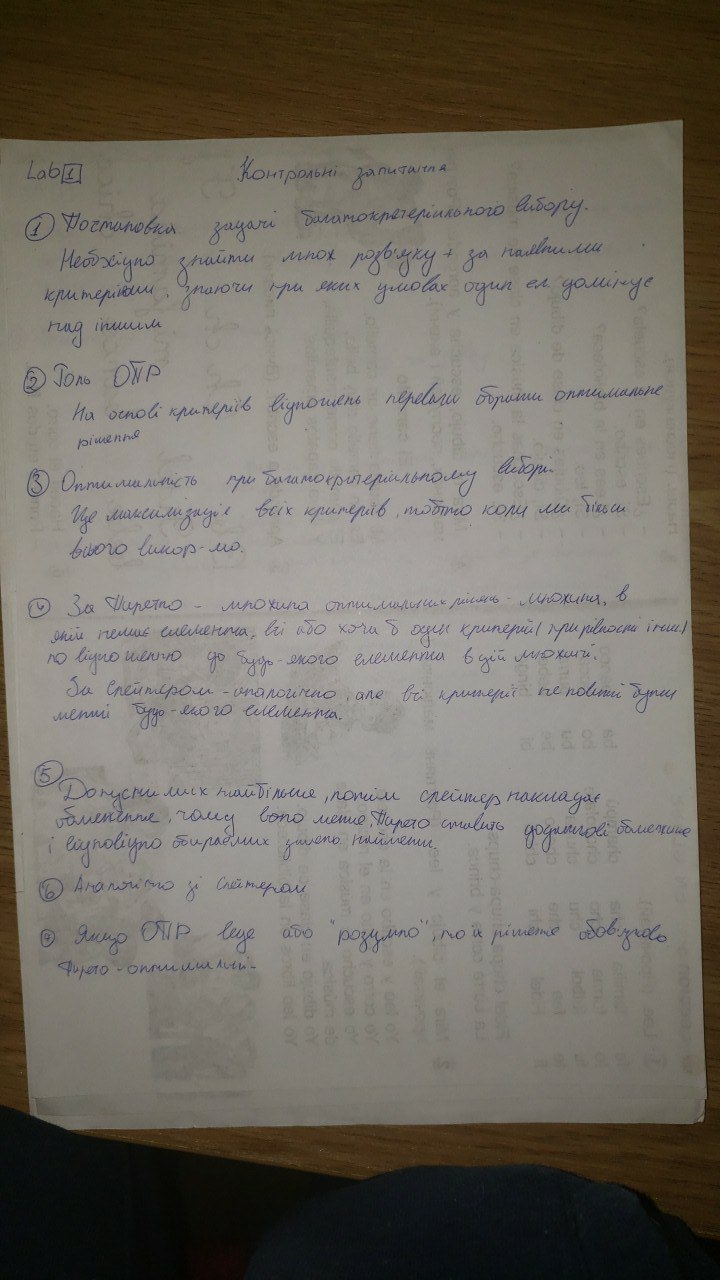 Lab 1 Контрольні запитання
1 Постановка задачі багатокретеріального вибору.
Необхідно знайти множ розв'язку + за наявними
критеріями, знаючи при яких умовах один ел домінує
над іншим
2 Роль ОПР
На основі критеріїв відношень переваги обрати оптимальне
рішення
3 Оптимальність при багатокритеріальному вибори
Це максимізація всіх критеріїв, тобто коли ми більш
всього викор-мо.
4 За Парето - множина оптимальних рішень - множина, в
якій немає елемента, всі або хоча б один критерій (при рівності інших)
по відношенню до будь-якого елемента в цій множині.
За Слейтером - аналогічно, але всі критерії не повинні бути
менші будь-якого елемента.
5
Допустимих найбільше, потім слейтер накладає
обмеження, чому воно менше, Парето ставить додаткові обмеження
і відповідно обираємих значень найменш.
6 Аналогічно зі Слейтером
7 Якщо ОПР веде себе "розумно", то їх рішення обов'язково
Парето-оптимальні.